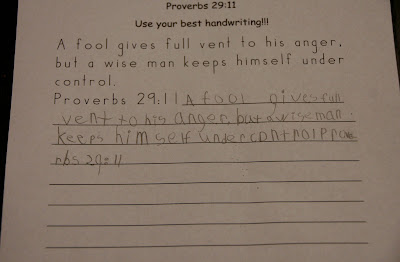 Proverbs 29:11
Use your best handwriting!!!
A fool gives full vent to his anger,
but a wise man keeps himself under
control.
Proverbs 29:11 A fool gives full
vent to his anger, but a wise man
keeps him self under control Prove
rbs 29:11